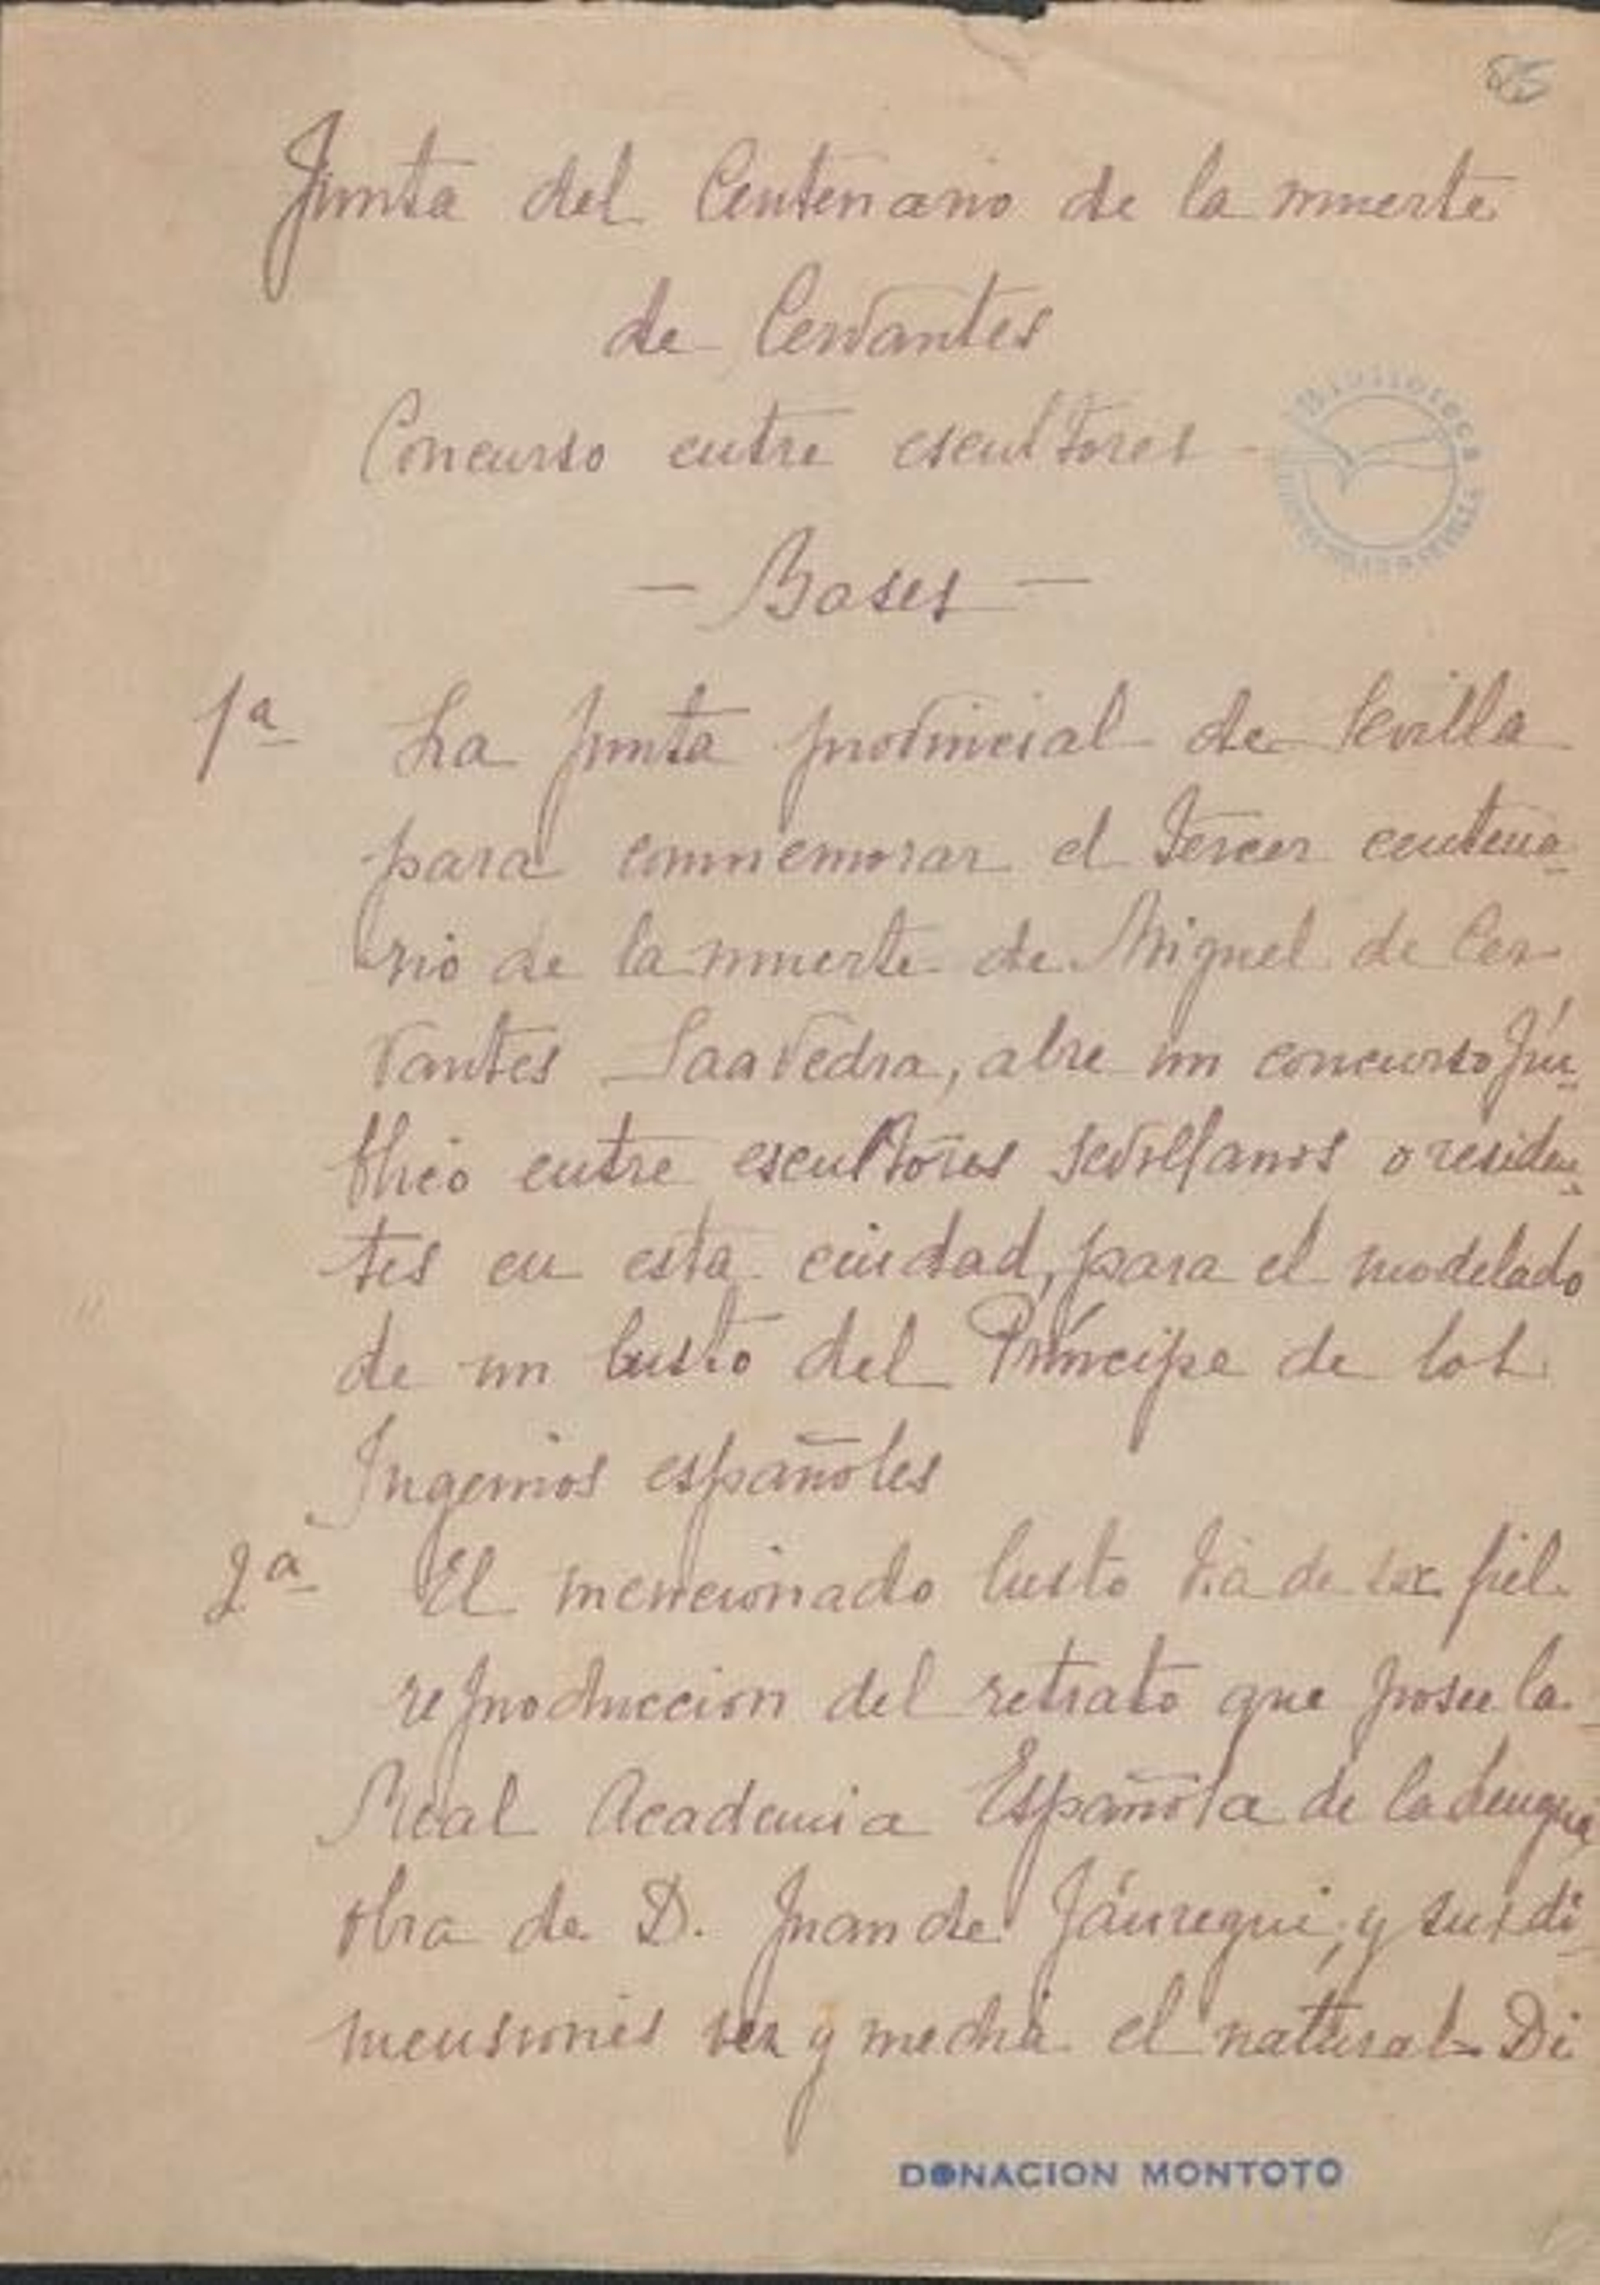 85
Junta del Centenario de la muerte
de Cervantes
Concurso entre escultores -
BIBLIOTECA
- Bases -
1ª La Junta provincial de Sevilla
para conmemorar el tercer centena-
rio de la muerte de Miguel de Cer
vantes Saavedra, abre un concurso pú-
blico entre escultores sevillanos o residen-
tes en esta ciudad, para el modelado
de un busto del Príncipe de los
Ingenios españoles
2ª El mencionado busto ha de ser fiel
reproduccion del retrato que posee la
Real Academia Española de la Lengua
obra de D. Juan de Jáuregui, y sus di-
mensiones vez y media el natural - Di
DONACION MONTOTO